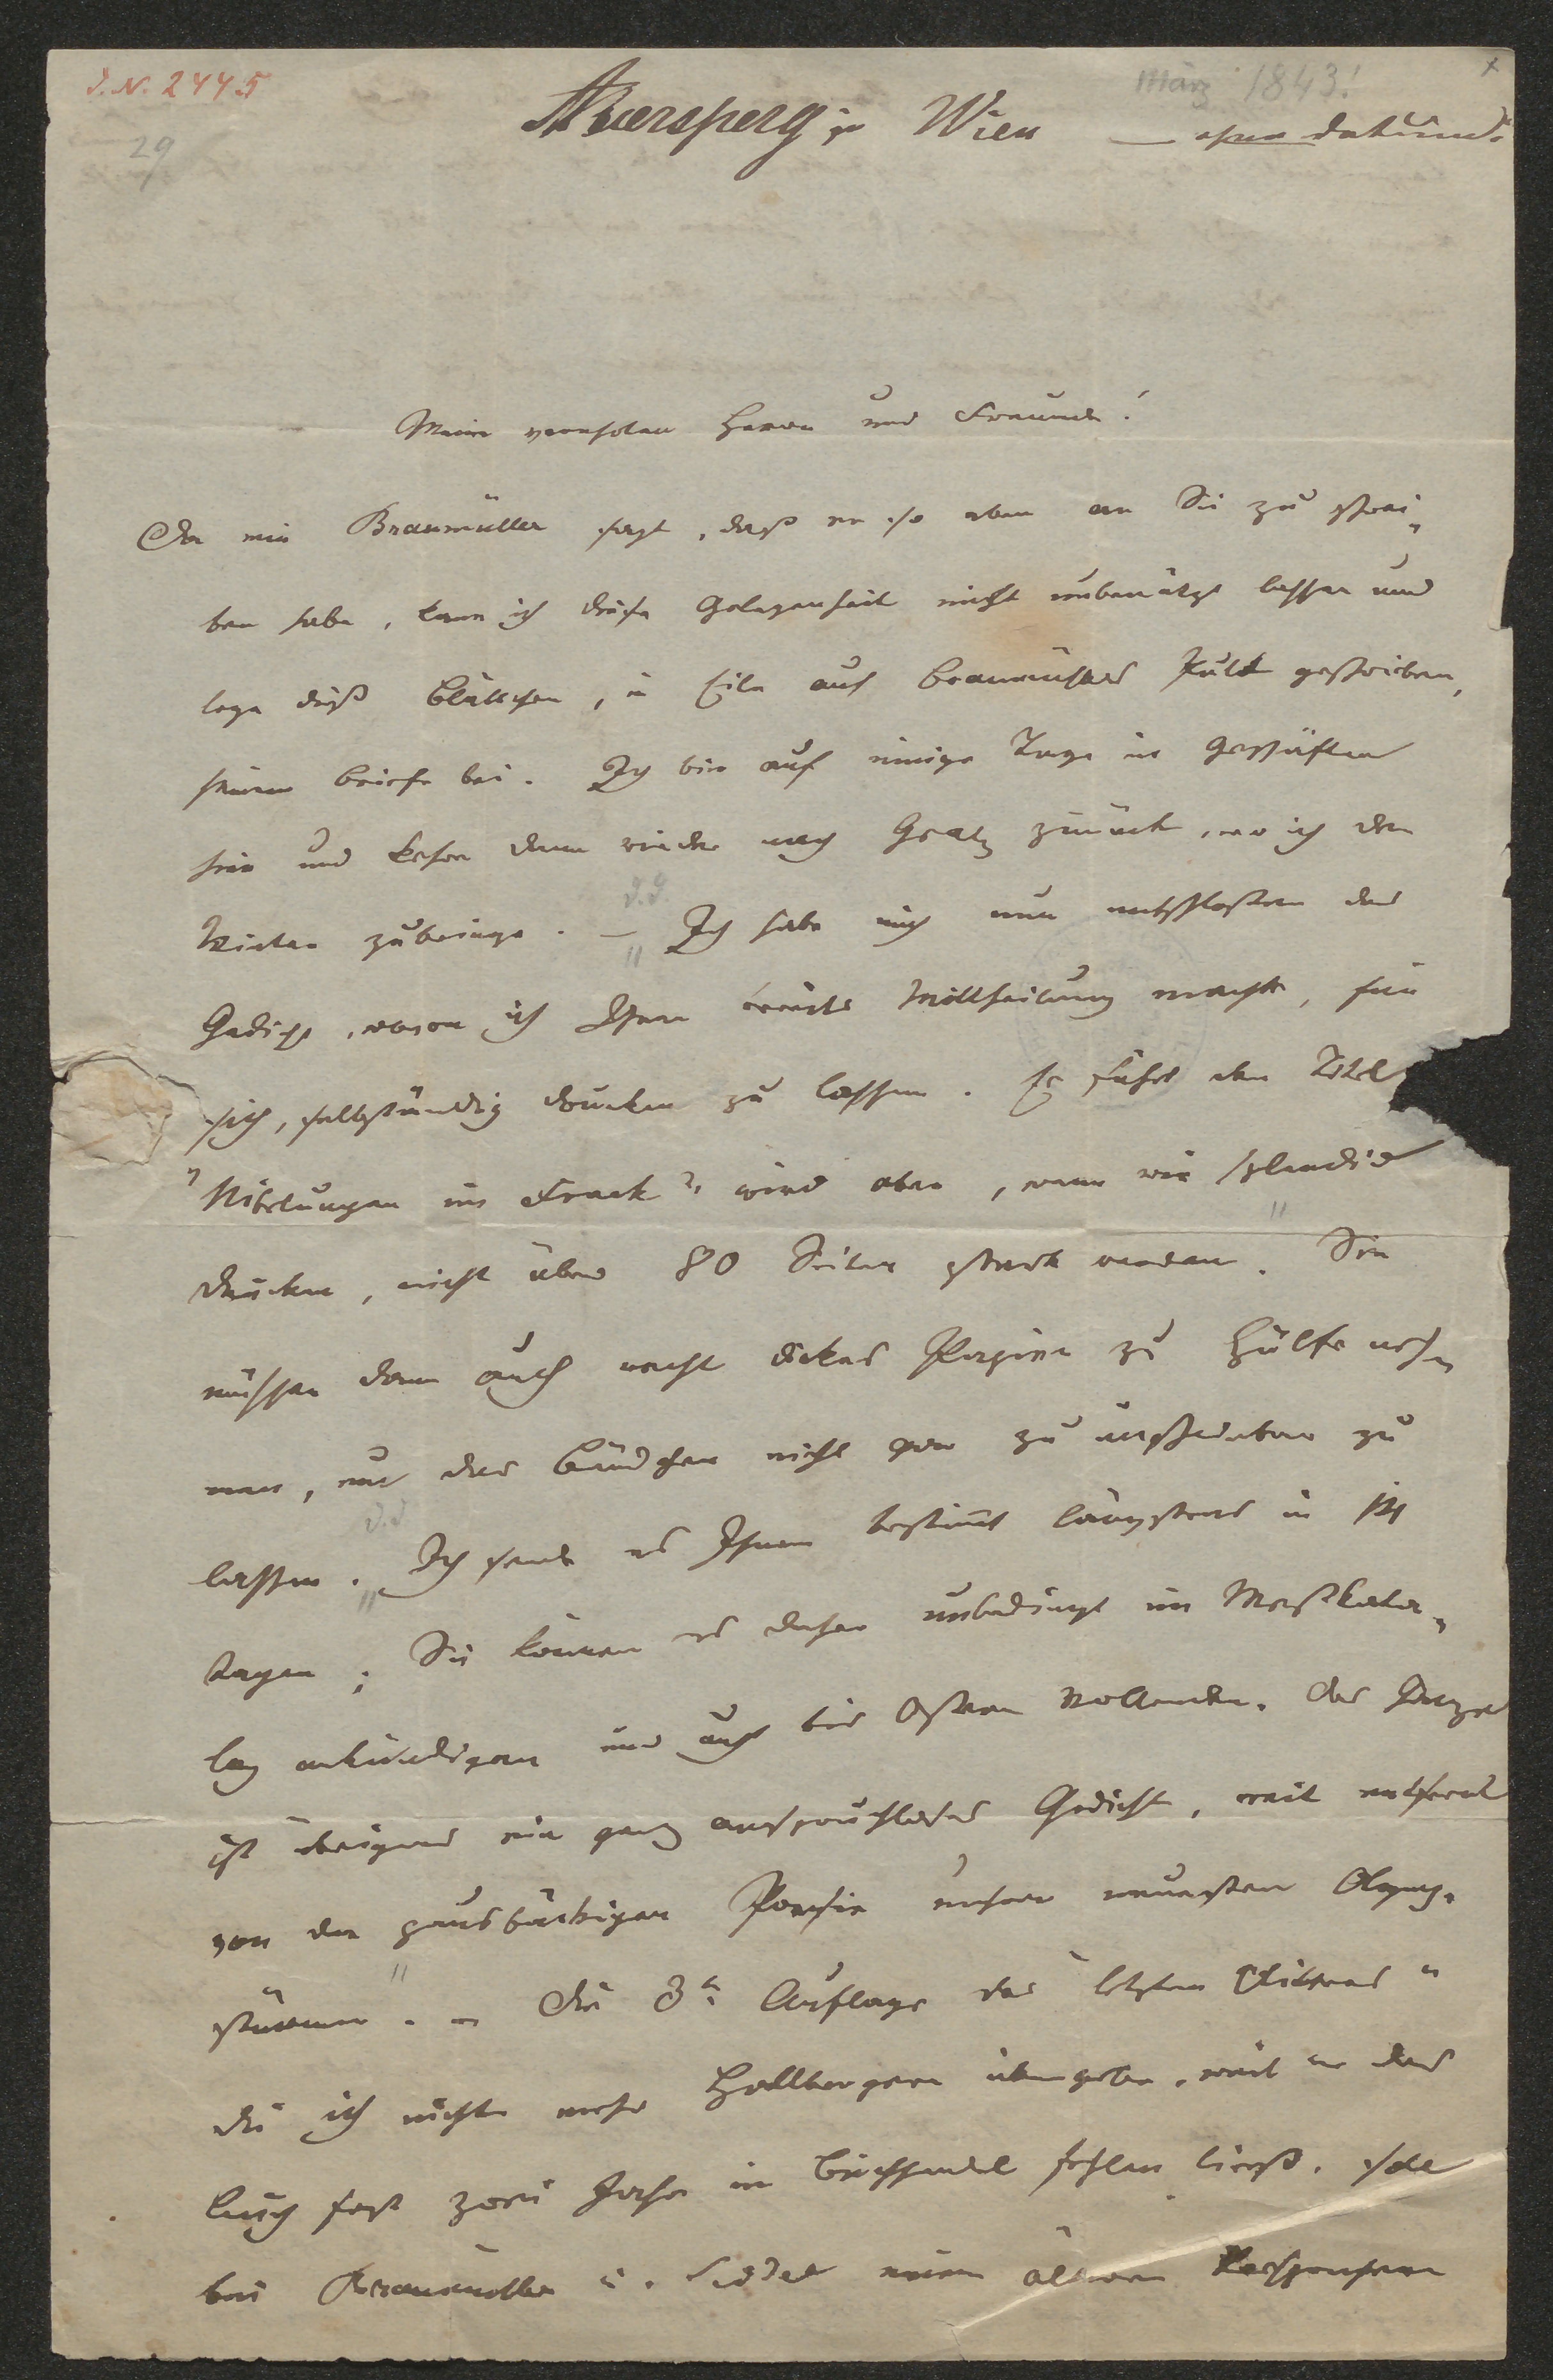 J.N. 2445
März 1843!
x
29
Auersperg in Wien — ohne Datum.
Mein verehrter Herr und Freund!
Da mir Braumüller sagt, daß er so eben an Sie zu schrei-
ben habe, kann ich diese Gelegenheit nicht unbenützt lassen und
lege dieß Blättchen, in Eile auf Braumüllers Pult geschrieben,
seinem Briefe bei. Ich bin auf einige Tage in Geschäften
hier und kehre dann wieder nach Gratz zurück, wo ich den
Winter zubringe. — Ich habe mich nun entschlossen das
Gedicht, wovon ich Ihnen bereits Mittheilung machte, für
sich, selbständig drucken zu lassen. Es führt den Titel
"Nibelungen im Frack", wird aber, wenn wir splendid
drucken, nicht über 80 Seiten stark werden. Sie
müssen dann auch recht dickes Papier zu Hülfe neh-
men, um das Bändchen nicht gar zu unscheinbar zu
lassen. Ich sende es Ihnen bestimmt längstens in 14
Tagen; Sie können es daher unbedingt im Meßkata-
log ankündigen und auch bis Ostern vollenden. Das Ganze
ist übrigens ein ganz anspruchloses Gedicht, weit entfernt
von der pausbäckigen Poesie unserer neuesten
stürmer. — Die 3te Auflage des "letzten Ritters"
die ich nicht mehr Hallbergern übergebe, weil er das
Buch fast zwei Jahre im Buchhandel fehlen ließ, soll
bei Braumüller u. Seidel einem älteren Versprechen